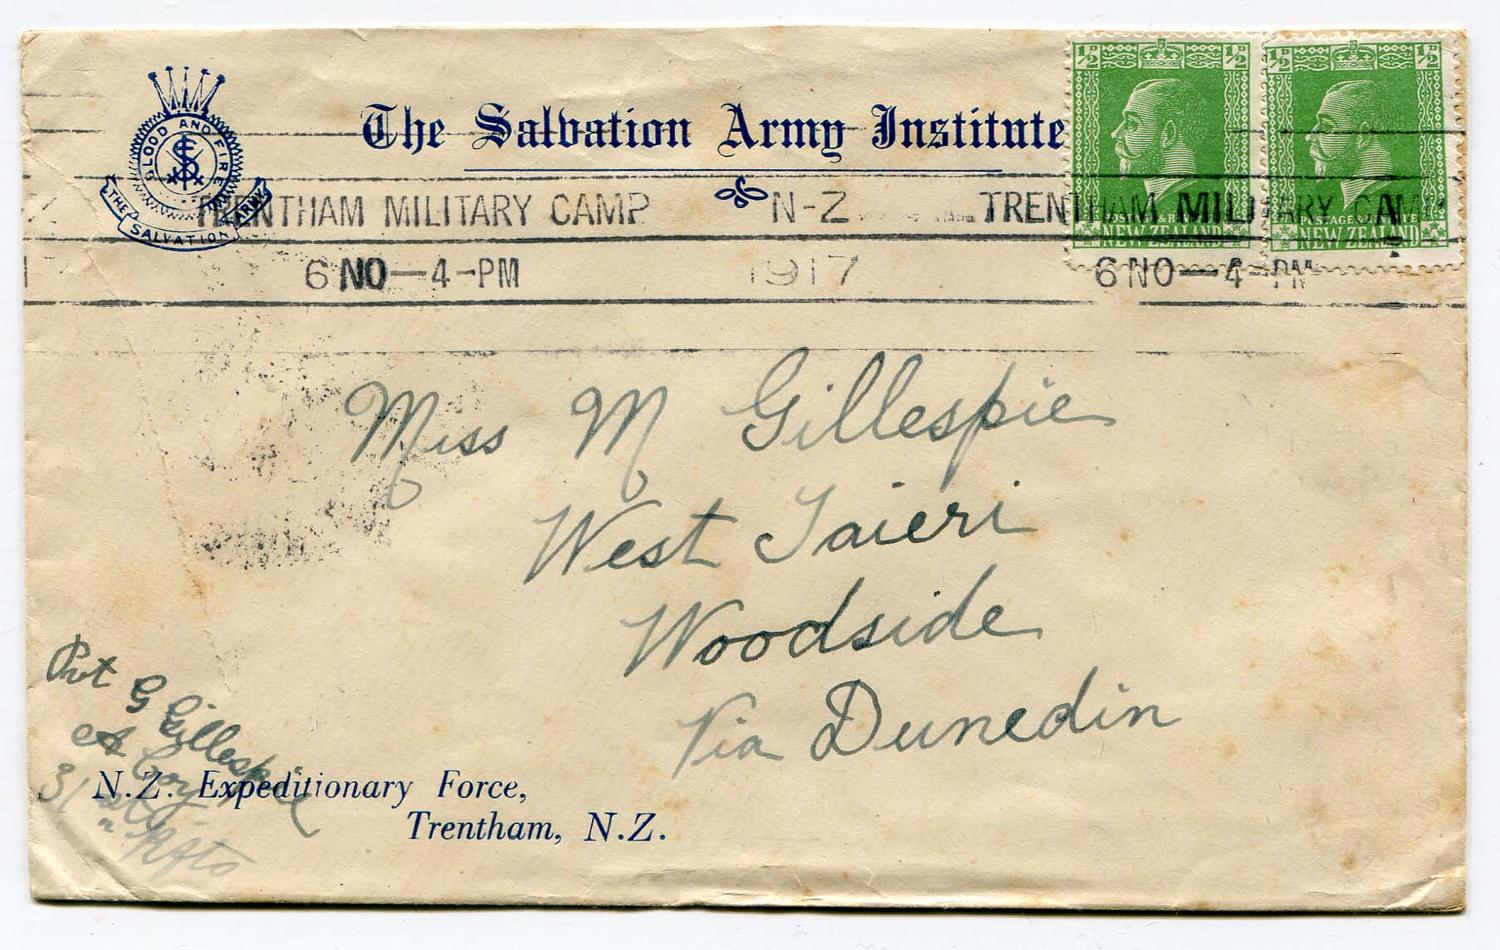 BLOOD AND FIRE
THE SALVATION ARMY
The Salvation Army Institute
½D ½D
½D ½D
POSTAGE & REVENUE
NEW ZEALAND
POSTAGE & REVENUE
NEW ZEALAND
TRENTHAM MILITARY CAMP N-Z TRENTHAM MILITARY CAMP
6 NO—4-PM 1917 6 NO—4-PM
Miss M Gillespie
West Taieri
Woodside
Via Dunedin
Pvt G Gillespie
A Coy
31st Rfts
N.Z. Expeditionary Force,
Trentham, N.Z.